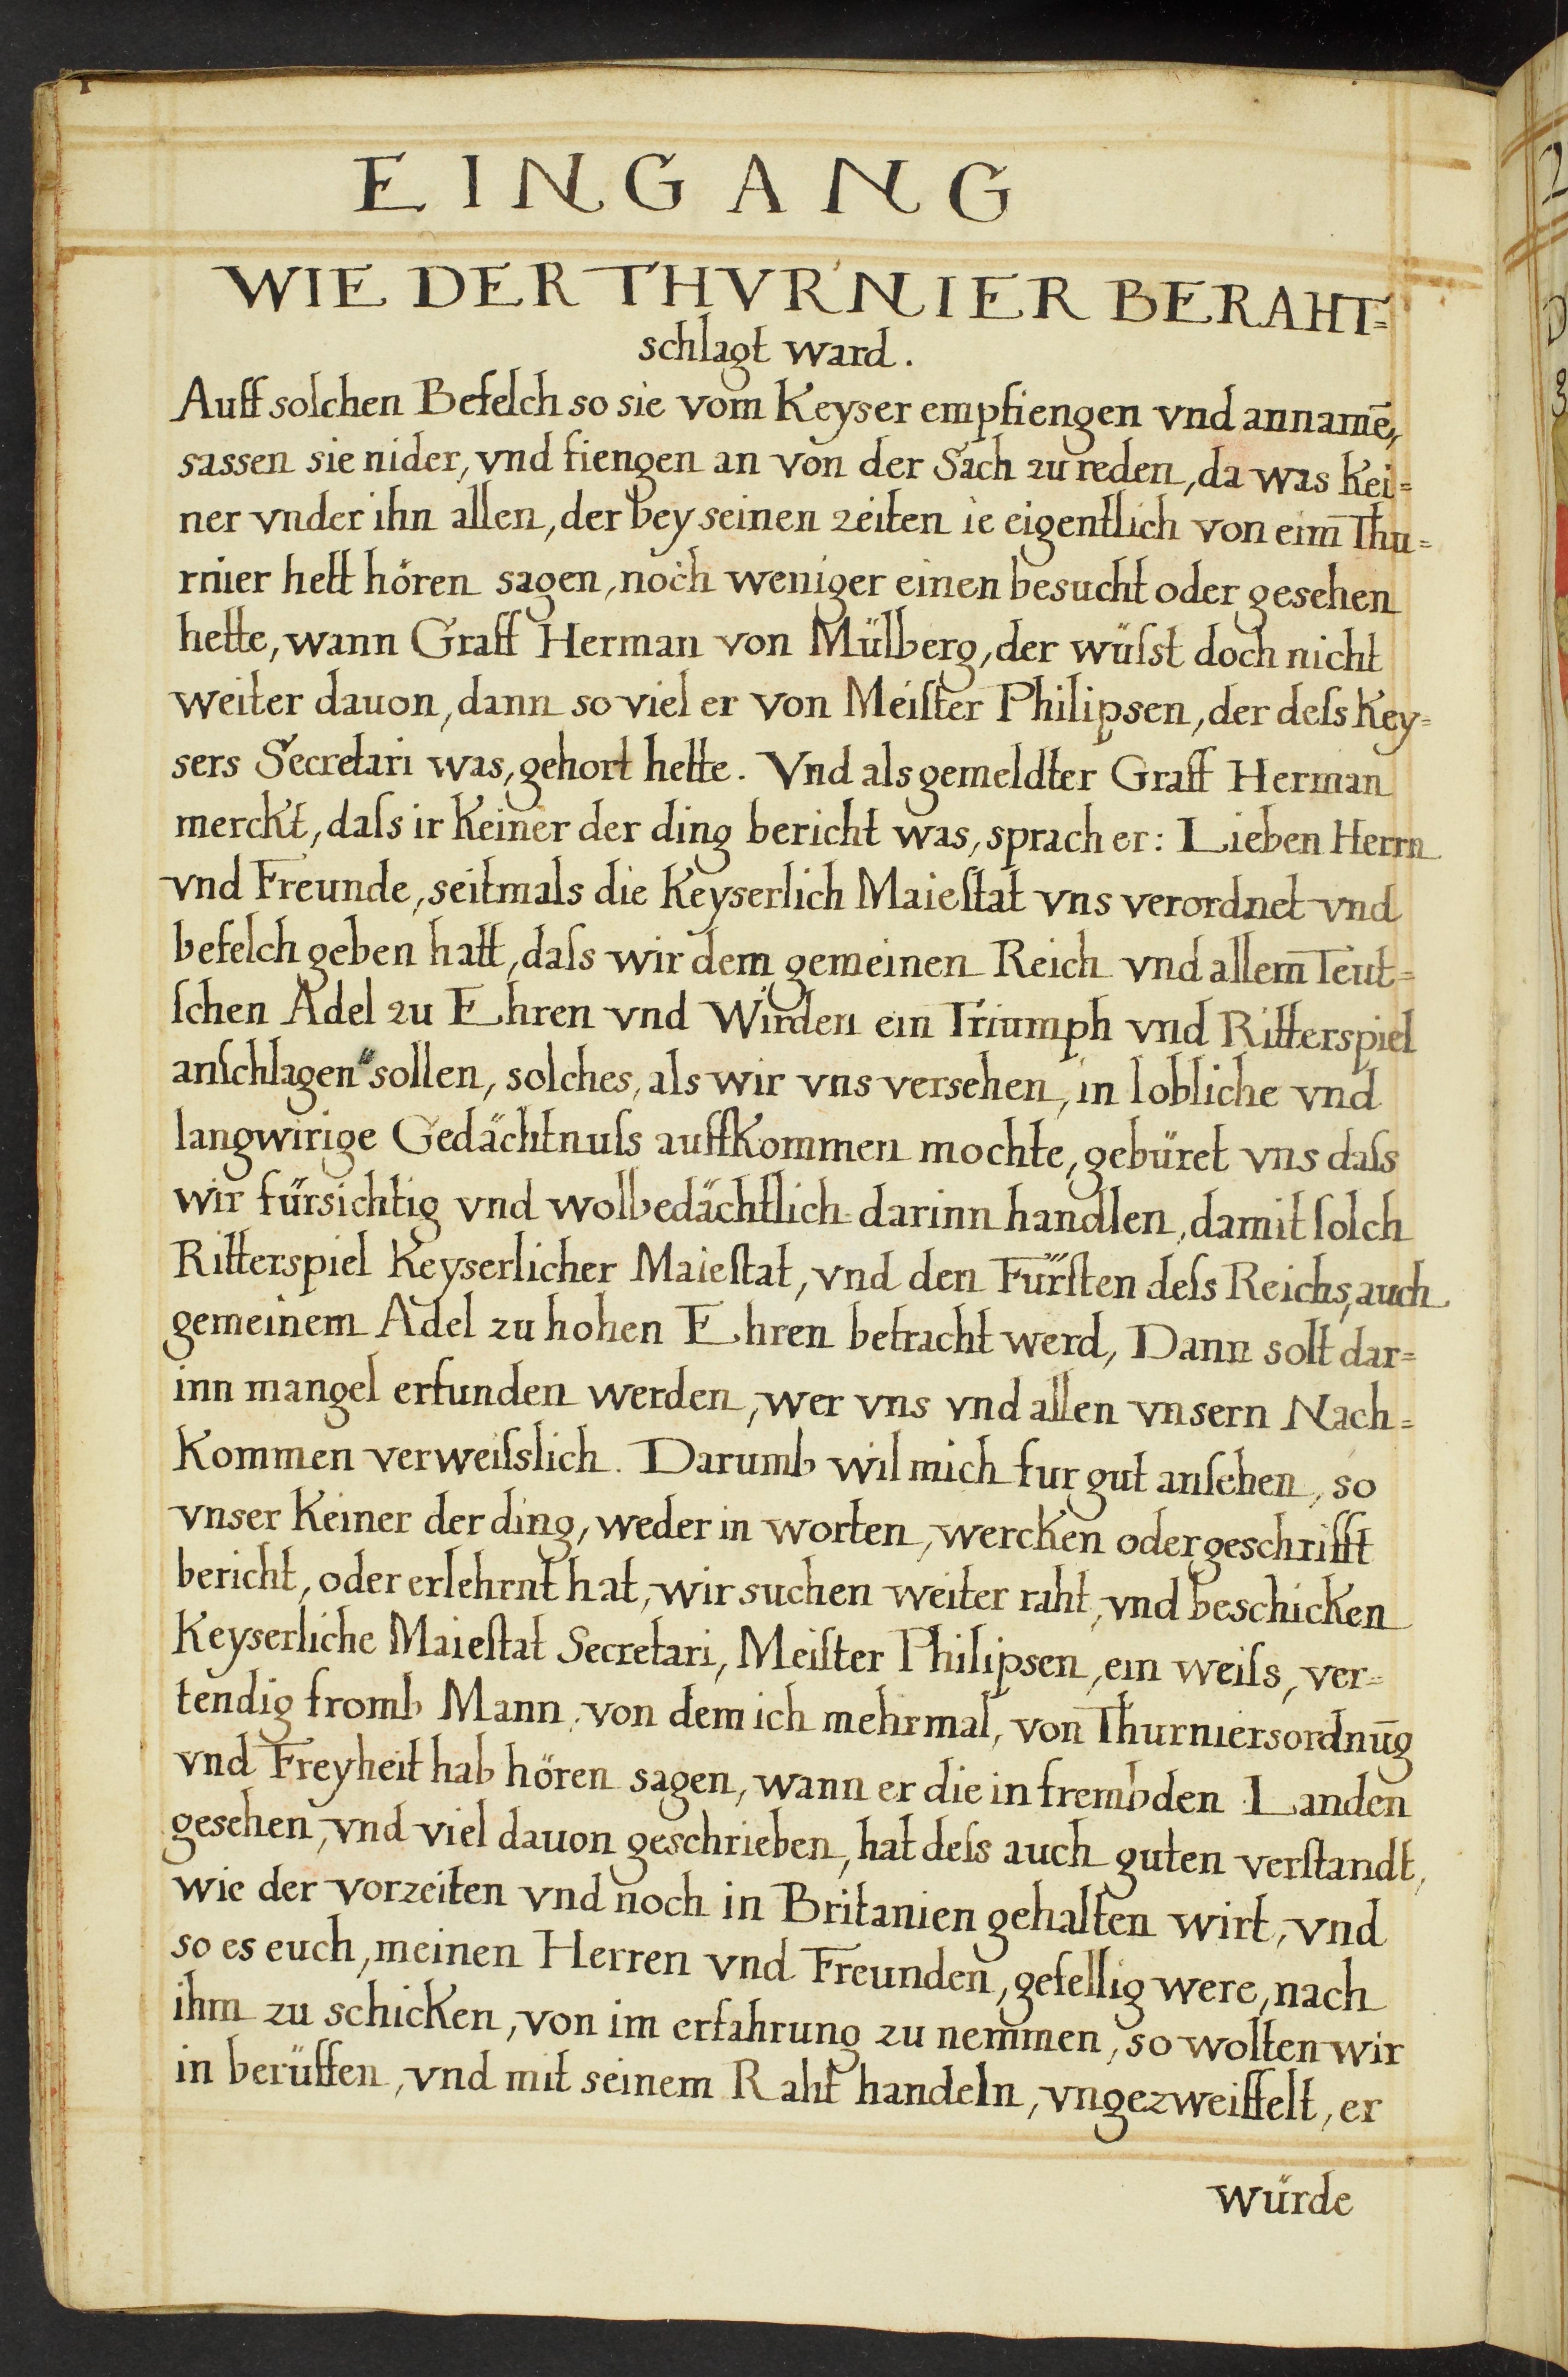 EINGANG
WIE DER THVRNIER BERAHT=
schlagt ward.
Auff solchen Befelch so sie vom Keyser empfiengen vnd annamē,
sassen sie nider, vnd fiengen an von der Sach zu reden, da was kei=
ner vnder ihn allen, der bey seinen zeiten ie eigentlich von eim̄ Thu=
rnier hett hören sagen, noch weniger einen besucht oder gesehen
hette, wann Graff Herman von Mülberg, der wüſst doch nicht
weiter dauon, dann so viel er von Meiſter Philipsen, der deſs Key=
sers Secretari was, gehort hette. Vnd als gemeldter Graff Herman
merckt, daſs ir keiner der ding bericht was, sprach er: Lieben Herrn
vnd Freunde, seitmals die Keyserlich Maieſtat vns verordnet vnd
befelch geben hatt, daſs wir dem gemeinen Reich vnd allem̄ Teut=
ſchen Adel zu Ehren vnd Wirden ein Triumph vnd Ritterspiel
anſchlagen sollen, solches, als wir vns versehen, in lobliche vnd
langwirige Gedächtnuſs auffkommen mochte, gebüret vns daſs
wir fürsichtig vnd wolbedächtlich darinn handlen, damit ſolch
Ritterspiel Keyserlicher Maieſtat, vnd den Fürſten deſs Reichs, auch
gemeinem Adel zu hohen Ehren betracht werd, Dann solt dar=
inn mangel erfunden werden, wer vns vnd allen vnsern Nach=
kommen verweiſslich. Darumb wil mich fur gut anſehen, so
vnser keiner der ding, weder in worten, wercken oder geschrifft
bericht, oder erlehrnt hat, wir suchen weiter raht, vnd beschicken
Keyserliche Maieſtat Secretari, Meiſter Philipsen, ein weiſs, ver=
tendig fromb Mann, von dem ich mehrmal, von Thurniersordnūg
vnd Freyheit hab hören sagen, wann er die in frembden Landen
gesehen, vnd viel dauon geschrieben, hat deſs auch guten verſtandt,
wie der vorzeiten vnd noch in Britanien gehalten wirt, vnd
so es euch, meinen Herren vnd Freunden, gefellig were, nach
ihm zu schicken, von im erfahrung zu nemmen, so wolten wir
in berüffen, vnd mit seinem Raht handeln, vngezweiffelt, er
würde